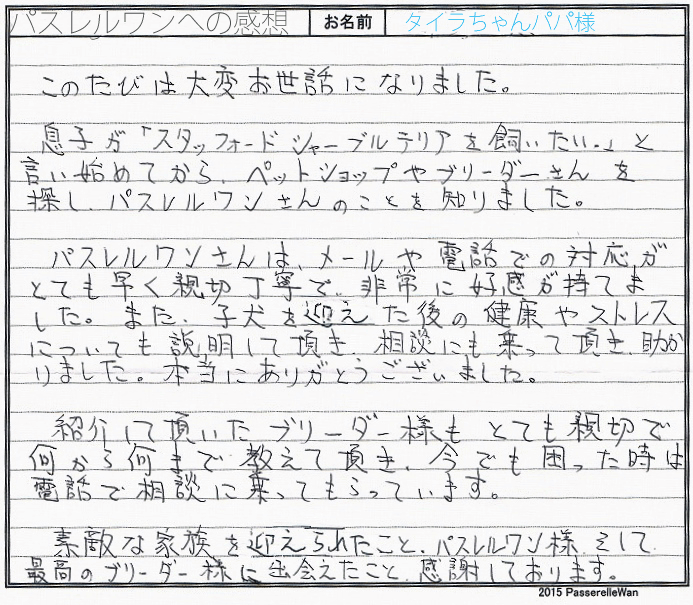 パスレルワンへの感想 お名前 タイラちゃんパパ様
このたびは大変お世話になりました。
息子が「スタッフォードシャーブルテリアを飼いたい。」と
言い始めてから、ペットショップやブリーダーさんを
探し、パスレルワンさんのことを知りました。
パスレルワンさんは、メールや電話での対応が
とても早く親切丁寧で、非常に好感が持てま
した。また、子犬を迎えた後の健康やストレス
についても説明して頂き、相談にも乗って頂き、助か
りました。本当にありがとうございました。
紹介して頂いたブリーダー様もとても親切で
何から何まで教えて頂き、今でも困った時は
電話で相談に乗ってもらっています。
素敵な家族を迎えられたこと、パスレルワン様、そして
最高のブリーダー様に出会えたこと、感謝しております。
2015 PasserelleWan